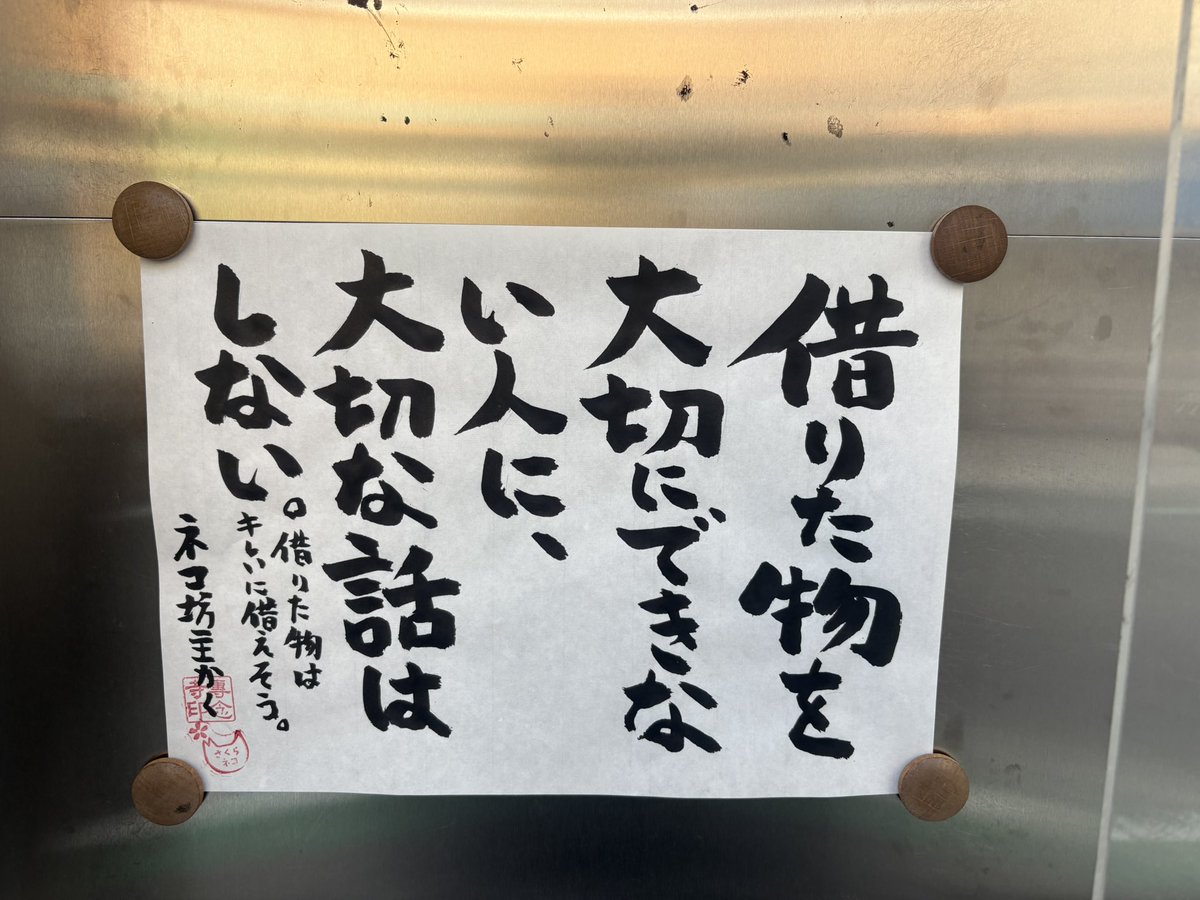 借りた物を
大切にできな
い人に、
大切な話は
しない。
借りた物は
キレいに借えそう。
ネコ坊主かく
専念
寺印
さくら
ネコ